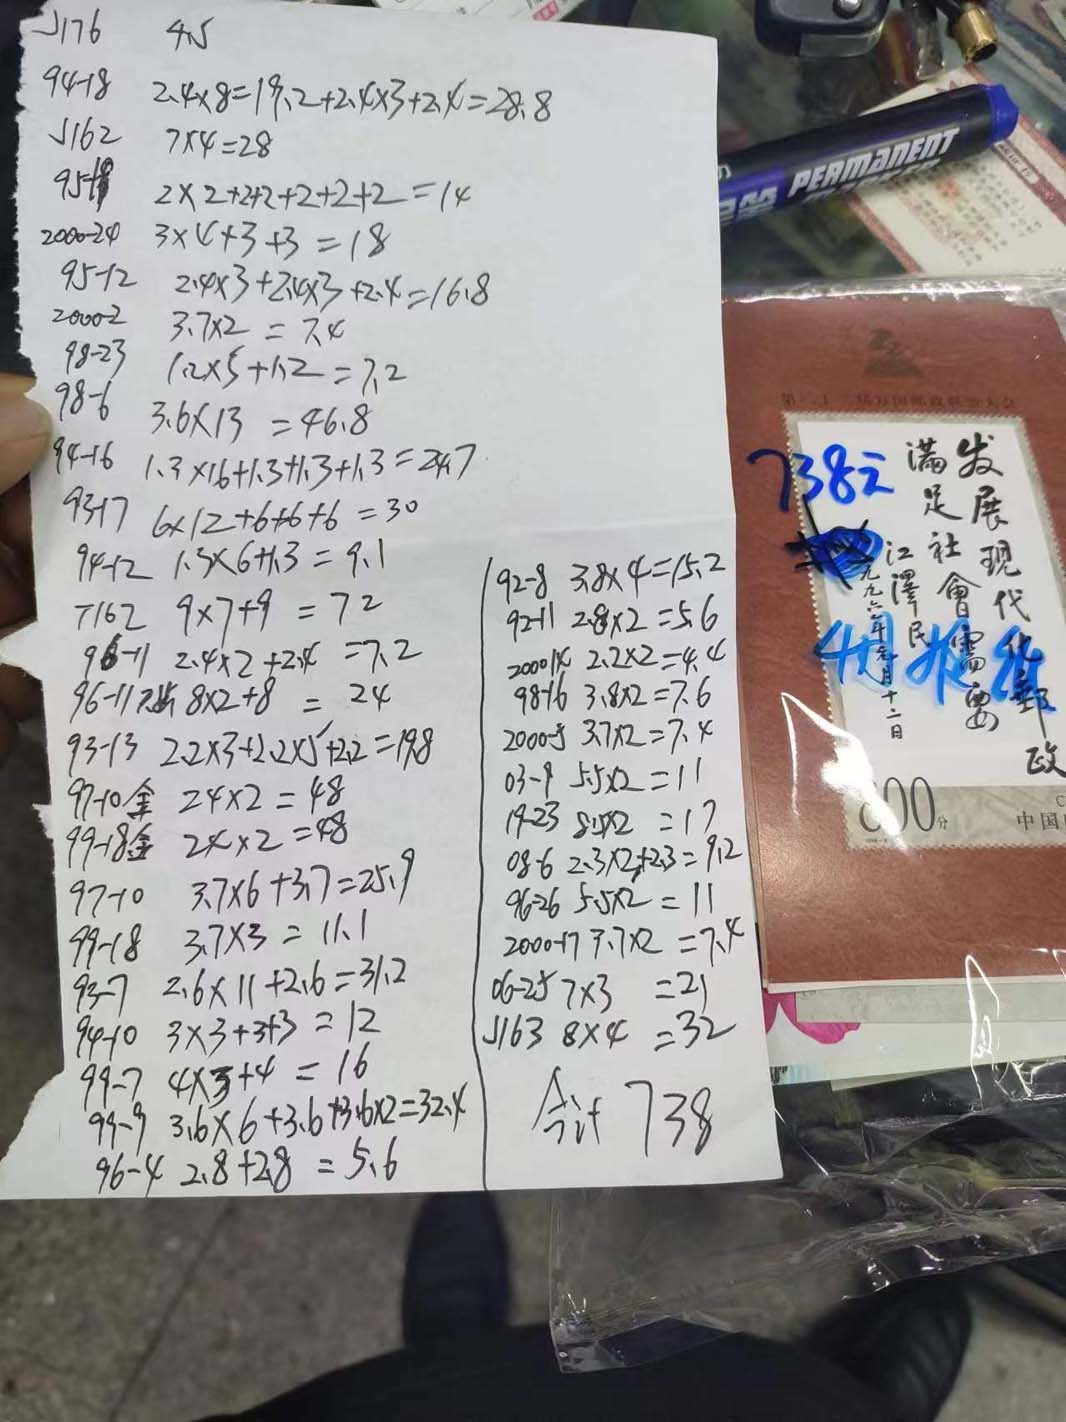 J176 45
94-18 2.4×8=19.2+2.4×3+2.4=28.8
J162 7×4=28
2×2+2+2+2+2+2=14
2000-24 3×4+3+3=18
95-12 2.4×3+2.4×3+2.4=16.8
2000-2 3.7×2=7.4
98-23 1.2×5+1.2=7.2
98-6 3.6×13=46.8
94-16 1.3×16+1.3+1.3+1.3=24.7
93-17 6×12+6+6+6=30
94-12 1.3×6+1.3=9.1
T162 9×7+9=72
96-11 2.4×2+2.4=7.2
96-11 8×2+8=24
93-13 2.2×3+2.2×5+2.2=19.8
97-10金 24×2=48
99-18金 24×2=48
97-10 3.7×6+3.7=25.9
99-18 3.7×3=11.1
93-7 2.6×11+2.6=31.2
94-10 3×3+3+3=12
99-7 4×3+4=16
99-9 3.6×6+3.6+3.6×2=32.4
96-4 2.8+2.8=5.6
92-8 3.8×4=15.2
92-11 2.8×2=5.6
2000-14 2.2×2=4.4
98-16 3.8×2=7.6
2000-5 3.7×2=7.4
03-9 5.5×2=11
19-23 8.5×2=17
08-6 2.3×2+2.3=9.2
96-26 5.5×2=11
2000-17 3.7×2=7.4
06-25 7×3=21
J163 8×4=32
合计 738
PERMANENT
738元
发展现代化邮政
满足社会需要
江泽民
一九九六年元月十二日
800分
中国